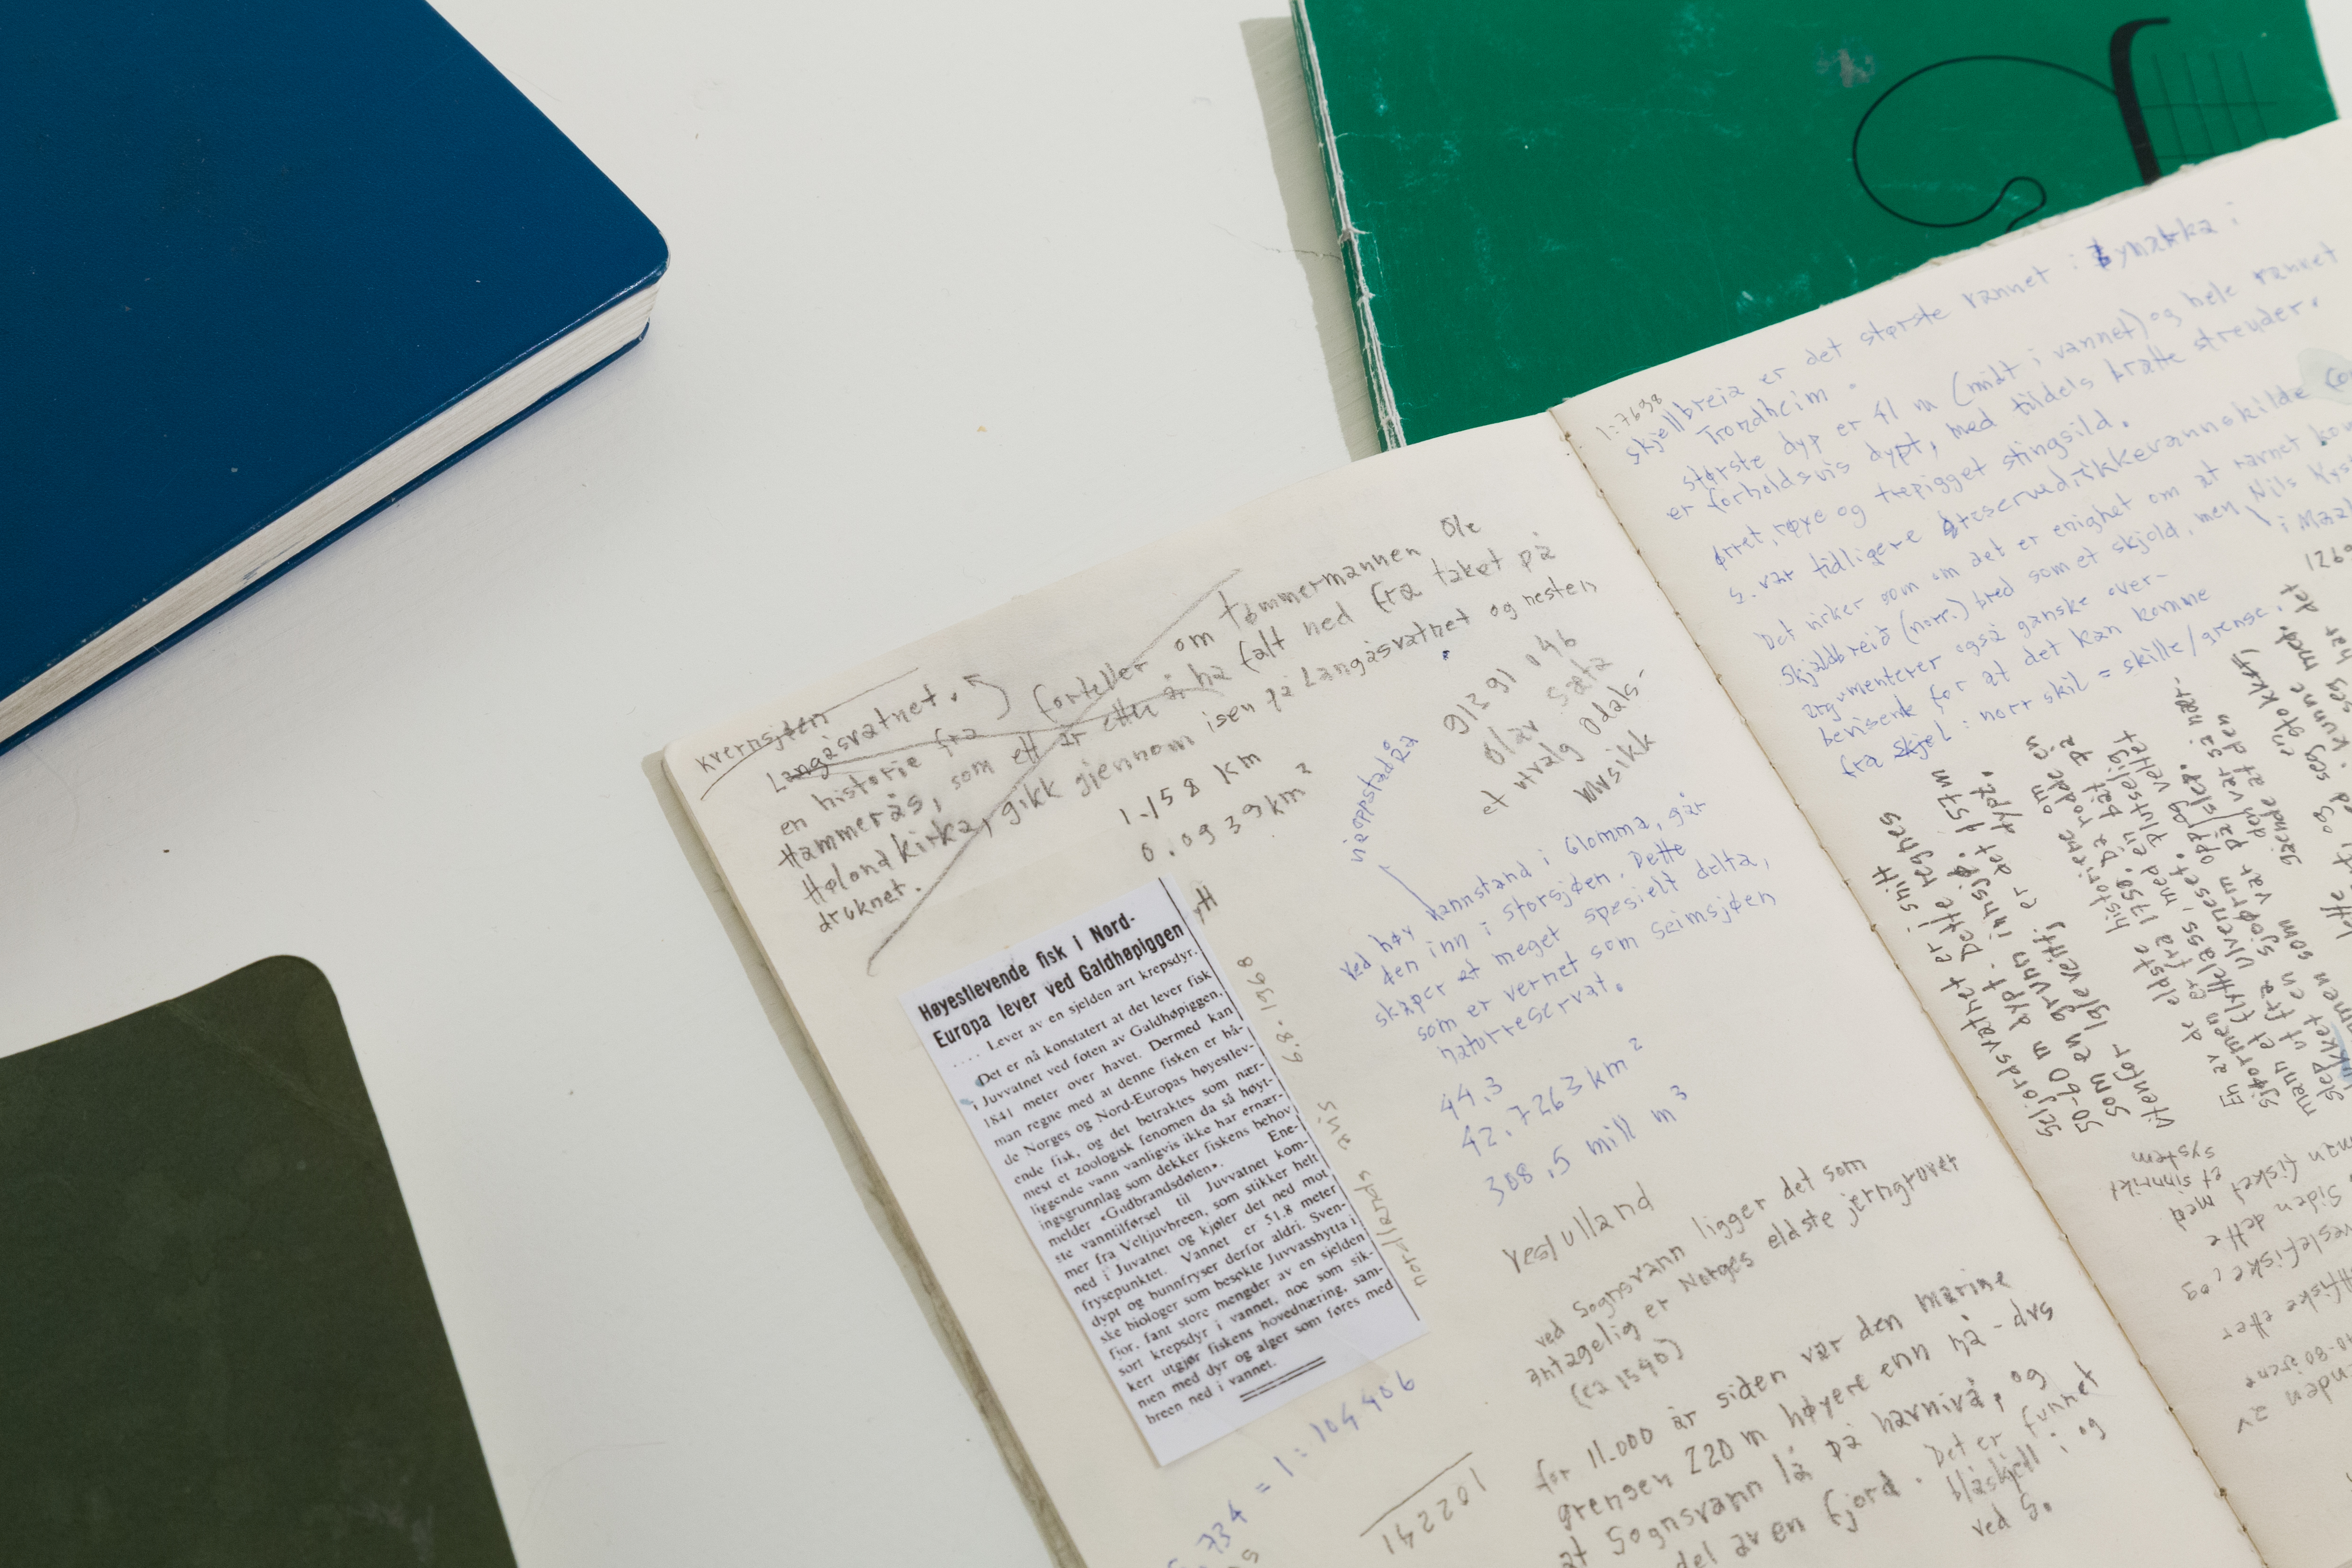 Kvernsjøen
Langåsvatnet.
en historie fra forteller om tømmermannen Ole
Hammerås, som ett år etter å ha falt ned fra taket på
Hølondkirka, gikk gjennom isen på Langåsvatnet og nesten
druknet.
1.158 km
0.0939 km²
Høyestlevende fisk i Nord-
Europa lever ved Galdhøpiggen
.... Lever av en sjelden art krepsdyr.
Det er nå konstatert at det lever fisk
i Juvvatnet ved foten av Galdhøpiggen,
1841 meter over havet. Dermed kan
man regne med at denne fisken er bå-
de Norges og Nord-Europas høyestlev-
ende fisk, og det betraktes som nær-
mest et zoologisk fenomen da så høyt-
liggende vann vanligvis ikke har ernær-
ingsgrunnlag som dekker fiskens behov
melder «Gudbrandsdølen». Ene-
ste vanntilførsel til Juvvatnet kom-
mer fra Veltjuvbreen, som stikker helt
ned i Juvatnet og kjøler det ned mot
frysepunktet. Vannet er 51.8 meter
dypt og bunnfryser derfor aldri. Sven-
ske biologer som besøkte Juvvasshytta i
fjor, fant store mengder av en sjelden
sort krepsdyr i vannet, noe som sik-
kert utgjør fiskens hovednæring, sam-
men med dyr og alger som føres med
breen ned i vannet.
nordlands avis 6.8.1968
734 = 1:104406
102241
91391046
Olav Sæta
et utvalg Odals-
musikk
via oppstadåa
ved høy vannstand i Glomma, går
den inn i Storsjøen. Dette
skaper et meget spesielt delta,
som er vernet som Seimsjøen
naturreservat.
44.3
42.7263 km²
308.5 mill m³
Vest/ulland
ved Sognsvann ligger det som
antagelig er Norges eldste jerngruver
(ca 1540)
for 11.000 år siden var den marine
grensen 220 m høyere enn nå - dvs
at Sognsvann lå på havnivå, og
del av en fjord. Det er funnet
blåskjell i og
ved S.
1:7698
Skjellbreia er det største vannet i Bymarka i
Trondheim.
største dyp er 41 m (midt i vannet) og hele vannet
er forholdsvis dypt, med tildels bratte strender.
ørret, røye og trepigget stingsild.
S. var tidligere reservedrikkevannskilde
Det virker som om det er enighet om at navnet
Skjaldbreið (norr.) bred som et skjold, men Nils
argumenterer også ganske over-
bevisende for at det kan komme
fra skjel: norr skil = skille/grense.
Seljordsvatnet er i snitt
50-60 m dypt. Dette regnes
som en grunn innsjø.
Utenfor Iglevеitfj. er det 157 m dypt.
En av de eldste historiene om
sjøormen er fra 1750. Da rodde en
mann et flyttelass, med en båt på
slep ut fra Ulveneset. plutselig
dukket en sjøorm opp og veltet
som var på slep.
med
et sinnrikt
system